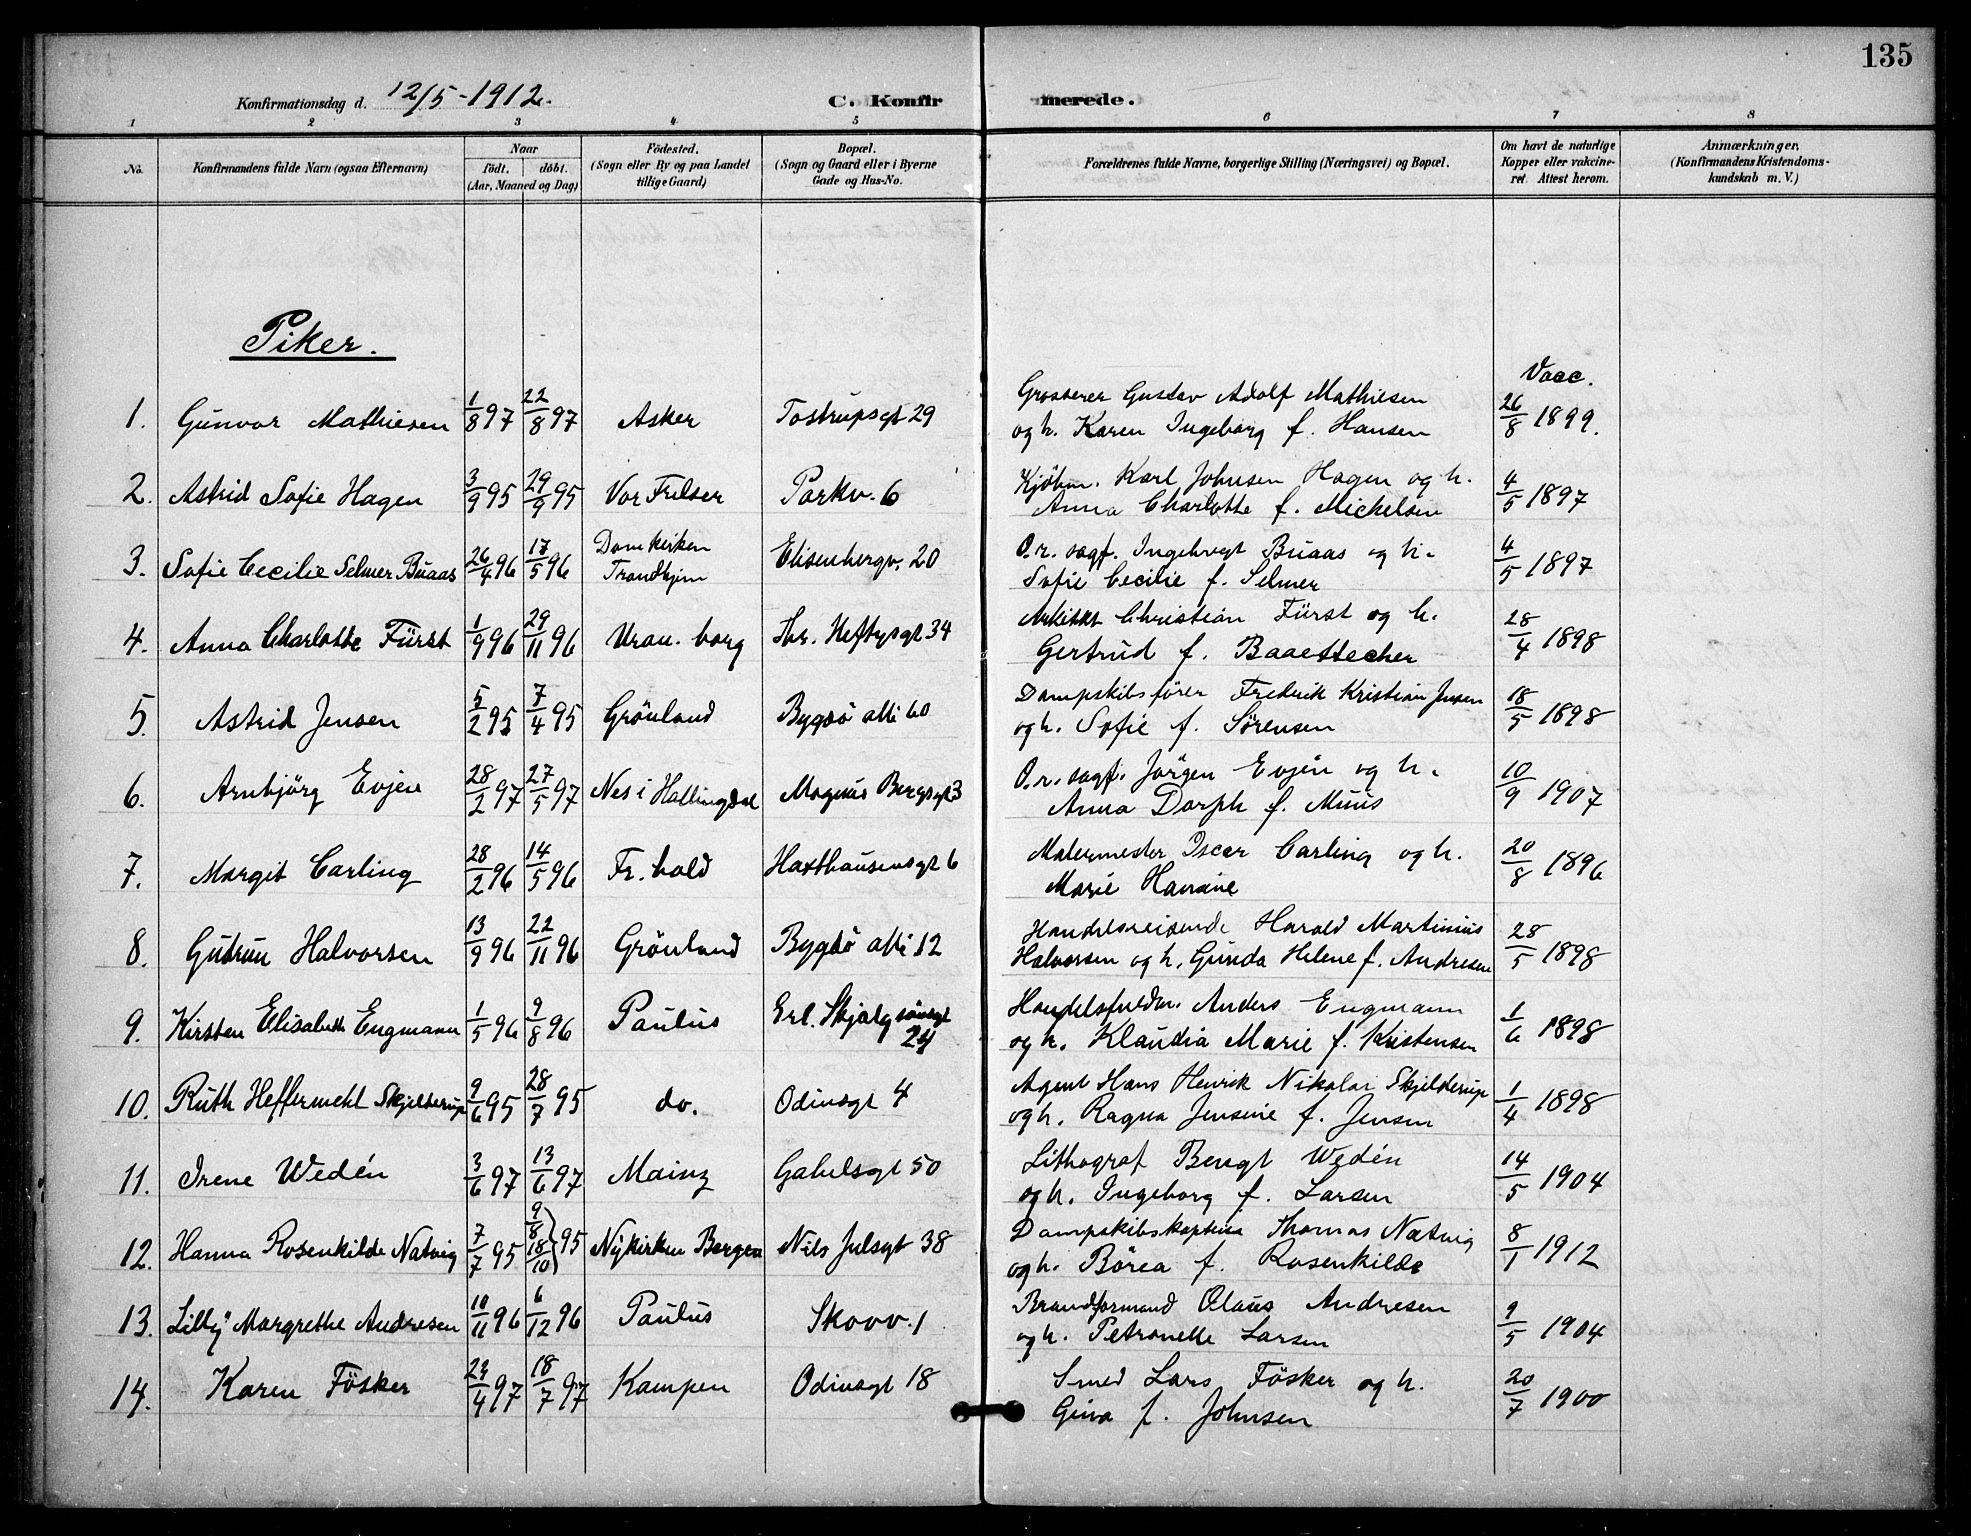 135
Konfirmationsdag d. 12/5-1912.
C. Konfirmerede.
1 2 3 4 5 6 7 8
No. Konfirmandens fulde Navn (ogsaa Efternavn) Naar født. døbt. (Aar, Maaned og Dag) Fødested. (Sogn eller By og paa Landet tillige Gaard) Bopæl. (Sogn og Gaard eller i Byerne Gade og Hus-No. Forældrenes fulde Navne, borgerlige Stilling (Næringsvei) og Bopæl. Om havt de naturlige Kopper eller vakcineret. Attest herom. Anmærkninger, (Konfirmandens Kristendomskundskab m. V.)
Piker.
Vacc.
1. Gunvor Mathiesen 1/8 97 22/8 97 Asker Tostrupsgt 29 Grosserer Gustav Adolf Mathiesen
og h. Karen Ingeborg f. Hansen 26/8 1899.
2. Astrid Sofie Hagen 3/9 95 29/9 95 Vor Frelser Parkv. 6 Kjöbm. Karl Johnsen Hagen og h.
Anna Charlotte f. Michelsen 4/5 1897
3. Sofie Cecilie Selmer Buaas 26/4 96 17/5 96 Domkirken
Trondhjem Elisenbergv. 20 O.r. sagf. Ingebrigt Buaas og h.
Sofie Cecilie f. Selmer 4/5 1897
4. Anna Charlotte Fürst 1/9 96 29/11 96 Uran. borg Thr. Heftysgt 34 Arkitekt Christian Fürst og h.
Gertrud f. 28/4 1898
5. Astrid Jensen 5/2 95 7/4 95 Grönland Bygdö alle 60 Dampskibsfører Fredrik Kristian Jensen
og h. Sofie f. Sørensen 18/5 1898
6. Arnbjörg Evjen 28/2 97 27/5 97 Nes i Hallingdal Magnus Bergsgt 3 O.r. sagf. Jörgen Evjen og h.
Anna Dorph f. Muus 10/9 1907
7. Margit Carling 28/2 96 14/5 96 Fr. hald Haxthausensgt 6 Malermester Oscar Carling og h.
Marie 20/8 1896
8. Gudrun Halvorsen 13/9 96 22/11 96 Grönland Bygdö alle 12 Handelsreisende Harald Martinius
Halvorsen og h. Gunda Helene f. Andresen 28/5 1898
9. Kirsten Elisabeth Engmann 1/5 96 9/8 96 Paulus Erl. Skjalgsönsgt
24 Handelsfuldm. Anders Engmann
og h. Klaudia Marie f. Kristensen 1/6 1898
10. Ruth Heffermehl Skjelderup 9/6 95 28/7 95 do. Odinsgt 4 Agent Hans Henrik Nikolai Skjelderup
og h. Ragna Jensine f. Jensen 1/4 1898
11. Irene Wedén 3/6 97 13/6 97 Mainz Gabelsgt 50 Lithograf Bengt Wedén
og h. Ingeborg f. Larsen 14/5 1904
12. Hanna Rosenkilde Natvig 7/7 95 9/8 18/10 } 95 Nykirken Bergen Nils Julsgt 38 Dampskibskaptein Thomas Natvig
og h. Börea f. Rosenkilde 8/1 1912
13. Lilly Margrethe Andresen 10/11 96 6/12 96 Paulus Skovv. 1 Brandformand Olaus Andresen
og h. Petronelle Larsen 9/5 1904
14. Karen Fösker 4 97 18/7 97 Kampen Odinsgt 18 Smed Lars Fösker og h.
Gina f. Johnsen 20/7 1900